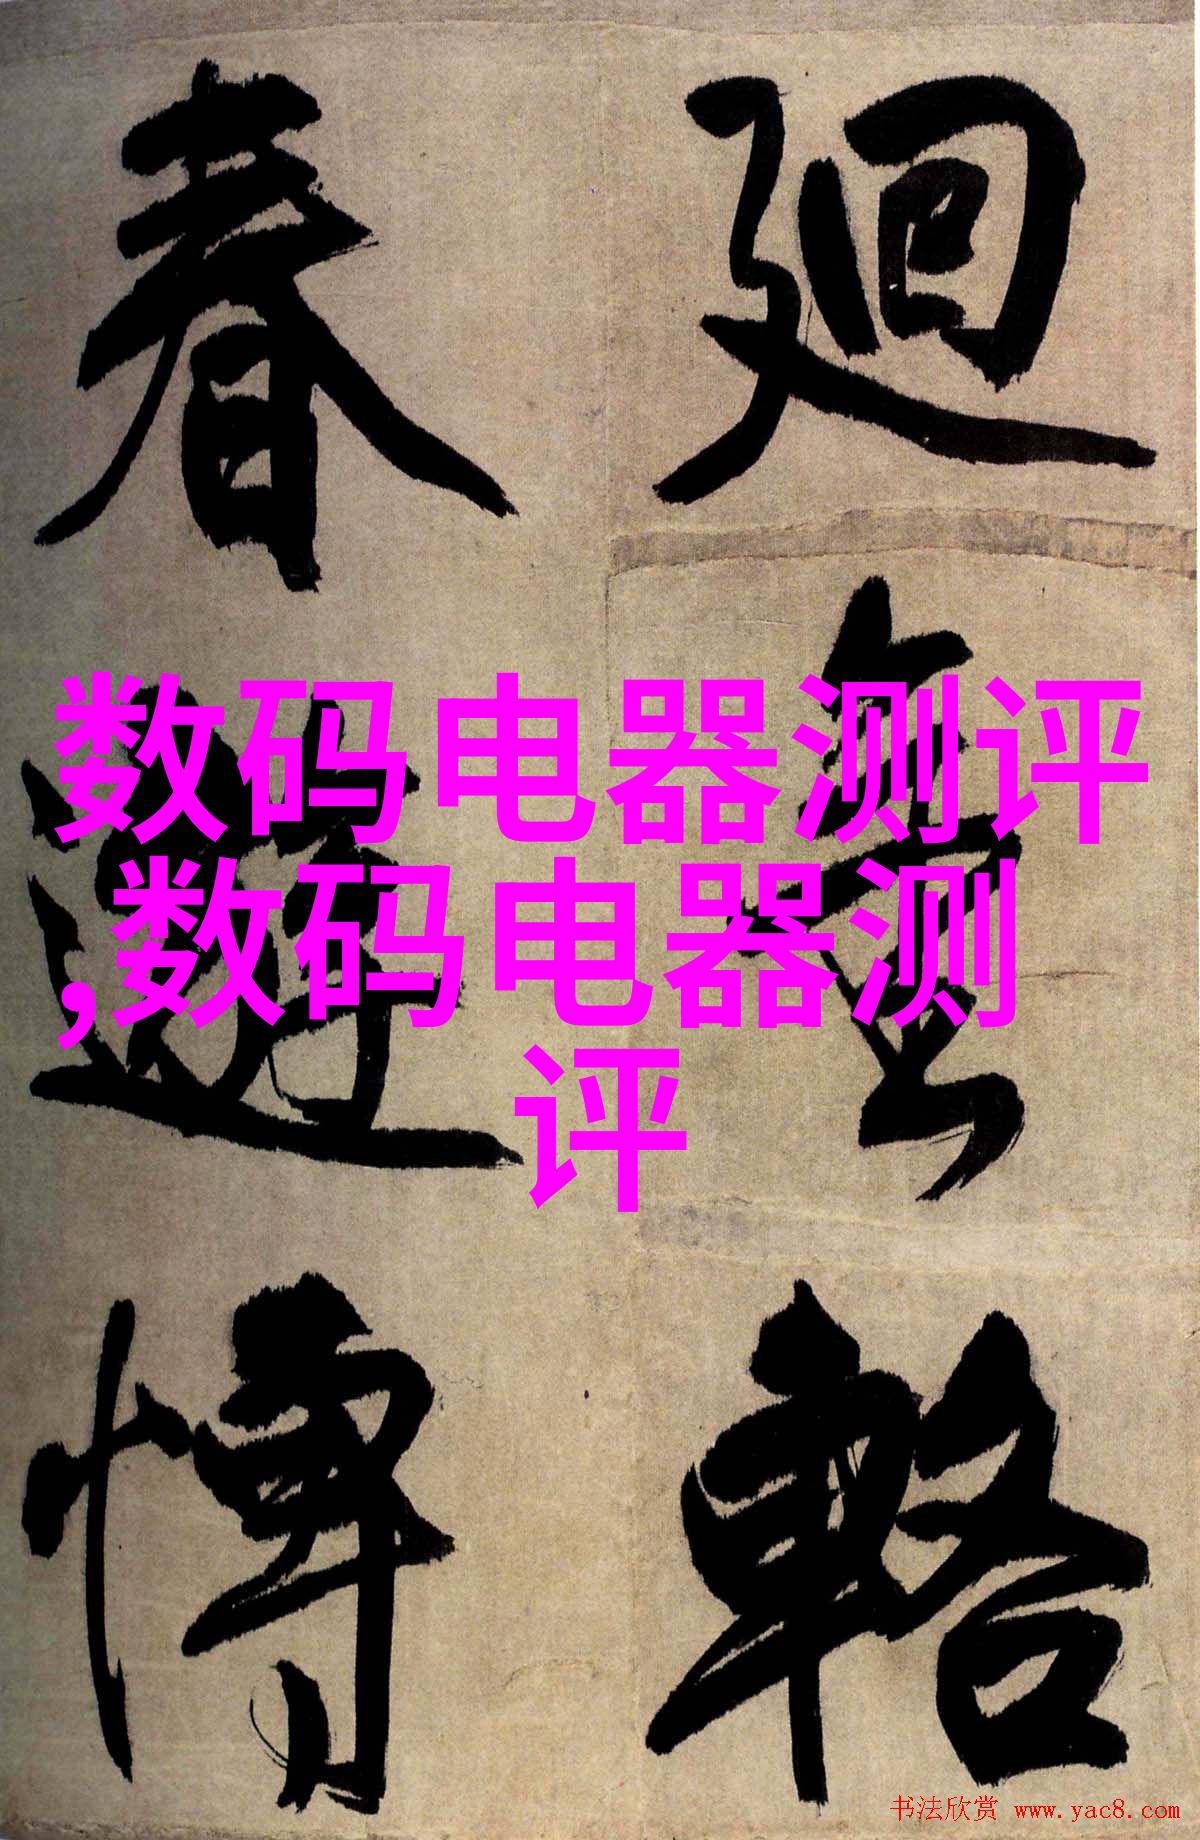 廻
輅
春遊愽
数码电器测评
,数码电器测
评
书法欣赏 www.yac8.com